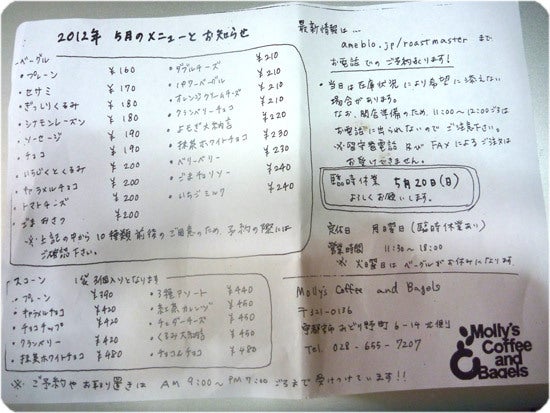 2012年 5月のメニューと お知らせ
ベーグル
・プレーン ¥160
・セサミ ¥170
・ぎっしりくるみ ¥180
・シナモンレーズン ¥180
・ソーセージ ¥190
・チョコ ¥190
・いちじくとくるみ ¥200
・キャラメルチョコ ¥200
・トマトチーズ ¥200
・ごま ¥200
・ダブルチーズ ¥210
・ベーグル ¥210
・オレンジクリームチーズ ¥210
・クランベリーチョコ ¥210
・よもぎ大納言 ¥220
・抹茶ホワイトチョコ ¥230
・ベリーベリー ¥230
・ごまチョリソー ¥240
・いちごミルク ¥240
※上記の中から10種類前後のご用意のため、予約の際には
ご確認下さい。
スコーン 1袋3個入りとなります
・プレーン ¥390
・キャラメルチョコ ¥420
・チョコチップ ¥420
・クランベリー ¥450
・抹茶ホワイトチョコ ¥480
・3種アソート ¥440
・紅茶オレンジ ¥450
・チェダーチーズ ¥450
・くるみ大納言 ¥450
・チョコとチョコ ¥480
※ご予約やお取り置きは AM 9:00〜PM 7:00ごろまで受けつけています!!
最新情報は…
ameblo.jp/roastmaster まで
お電話でのご予約承ります!
・当日は在庫状況により希望に添えない
場合があります。
なお、開店準備のため、11:00〜12:00ごろは
お電話に出られないのでご注意下さい。
※留守番電話及びFAXによるご注文は
お受けできません。
臨時休業 5月20日(日)
よろしくお願いします。
定休日 月曜日(臨時休業あり)
営業時間 11:30〜18:00
※火曜日はベーグルがお休みになります。
Molly's Coffee and Bagels
〒321-0136
宇都宮市みどり野町6-14
Tel. 028-655-7207
Molly's
Coffee
and
Bagels